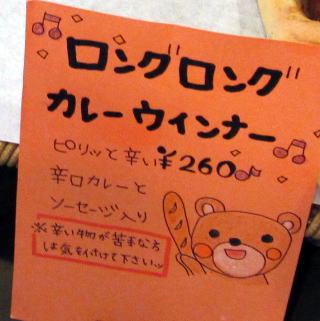 ロングロング
カレーウインナー
ピリッと辛い¥260
辛口カレーと
ソーセージ入り
※辛い物が苦手な方
は気を付けて下さいッ